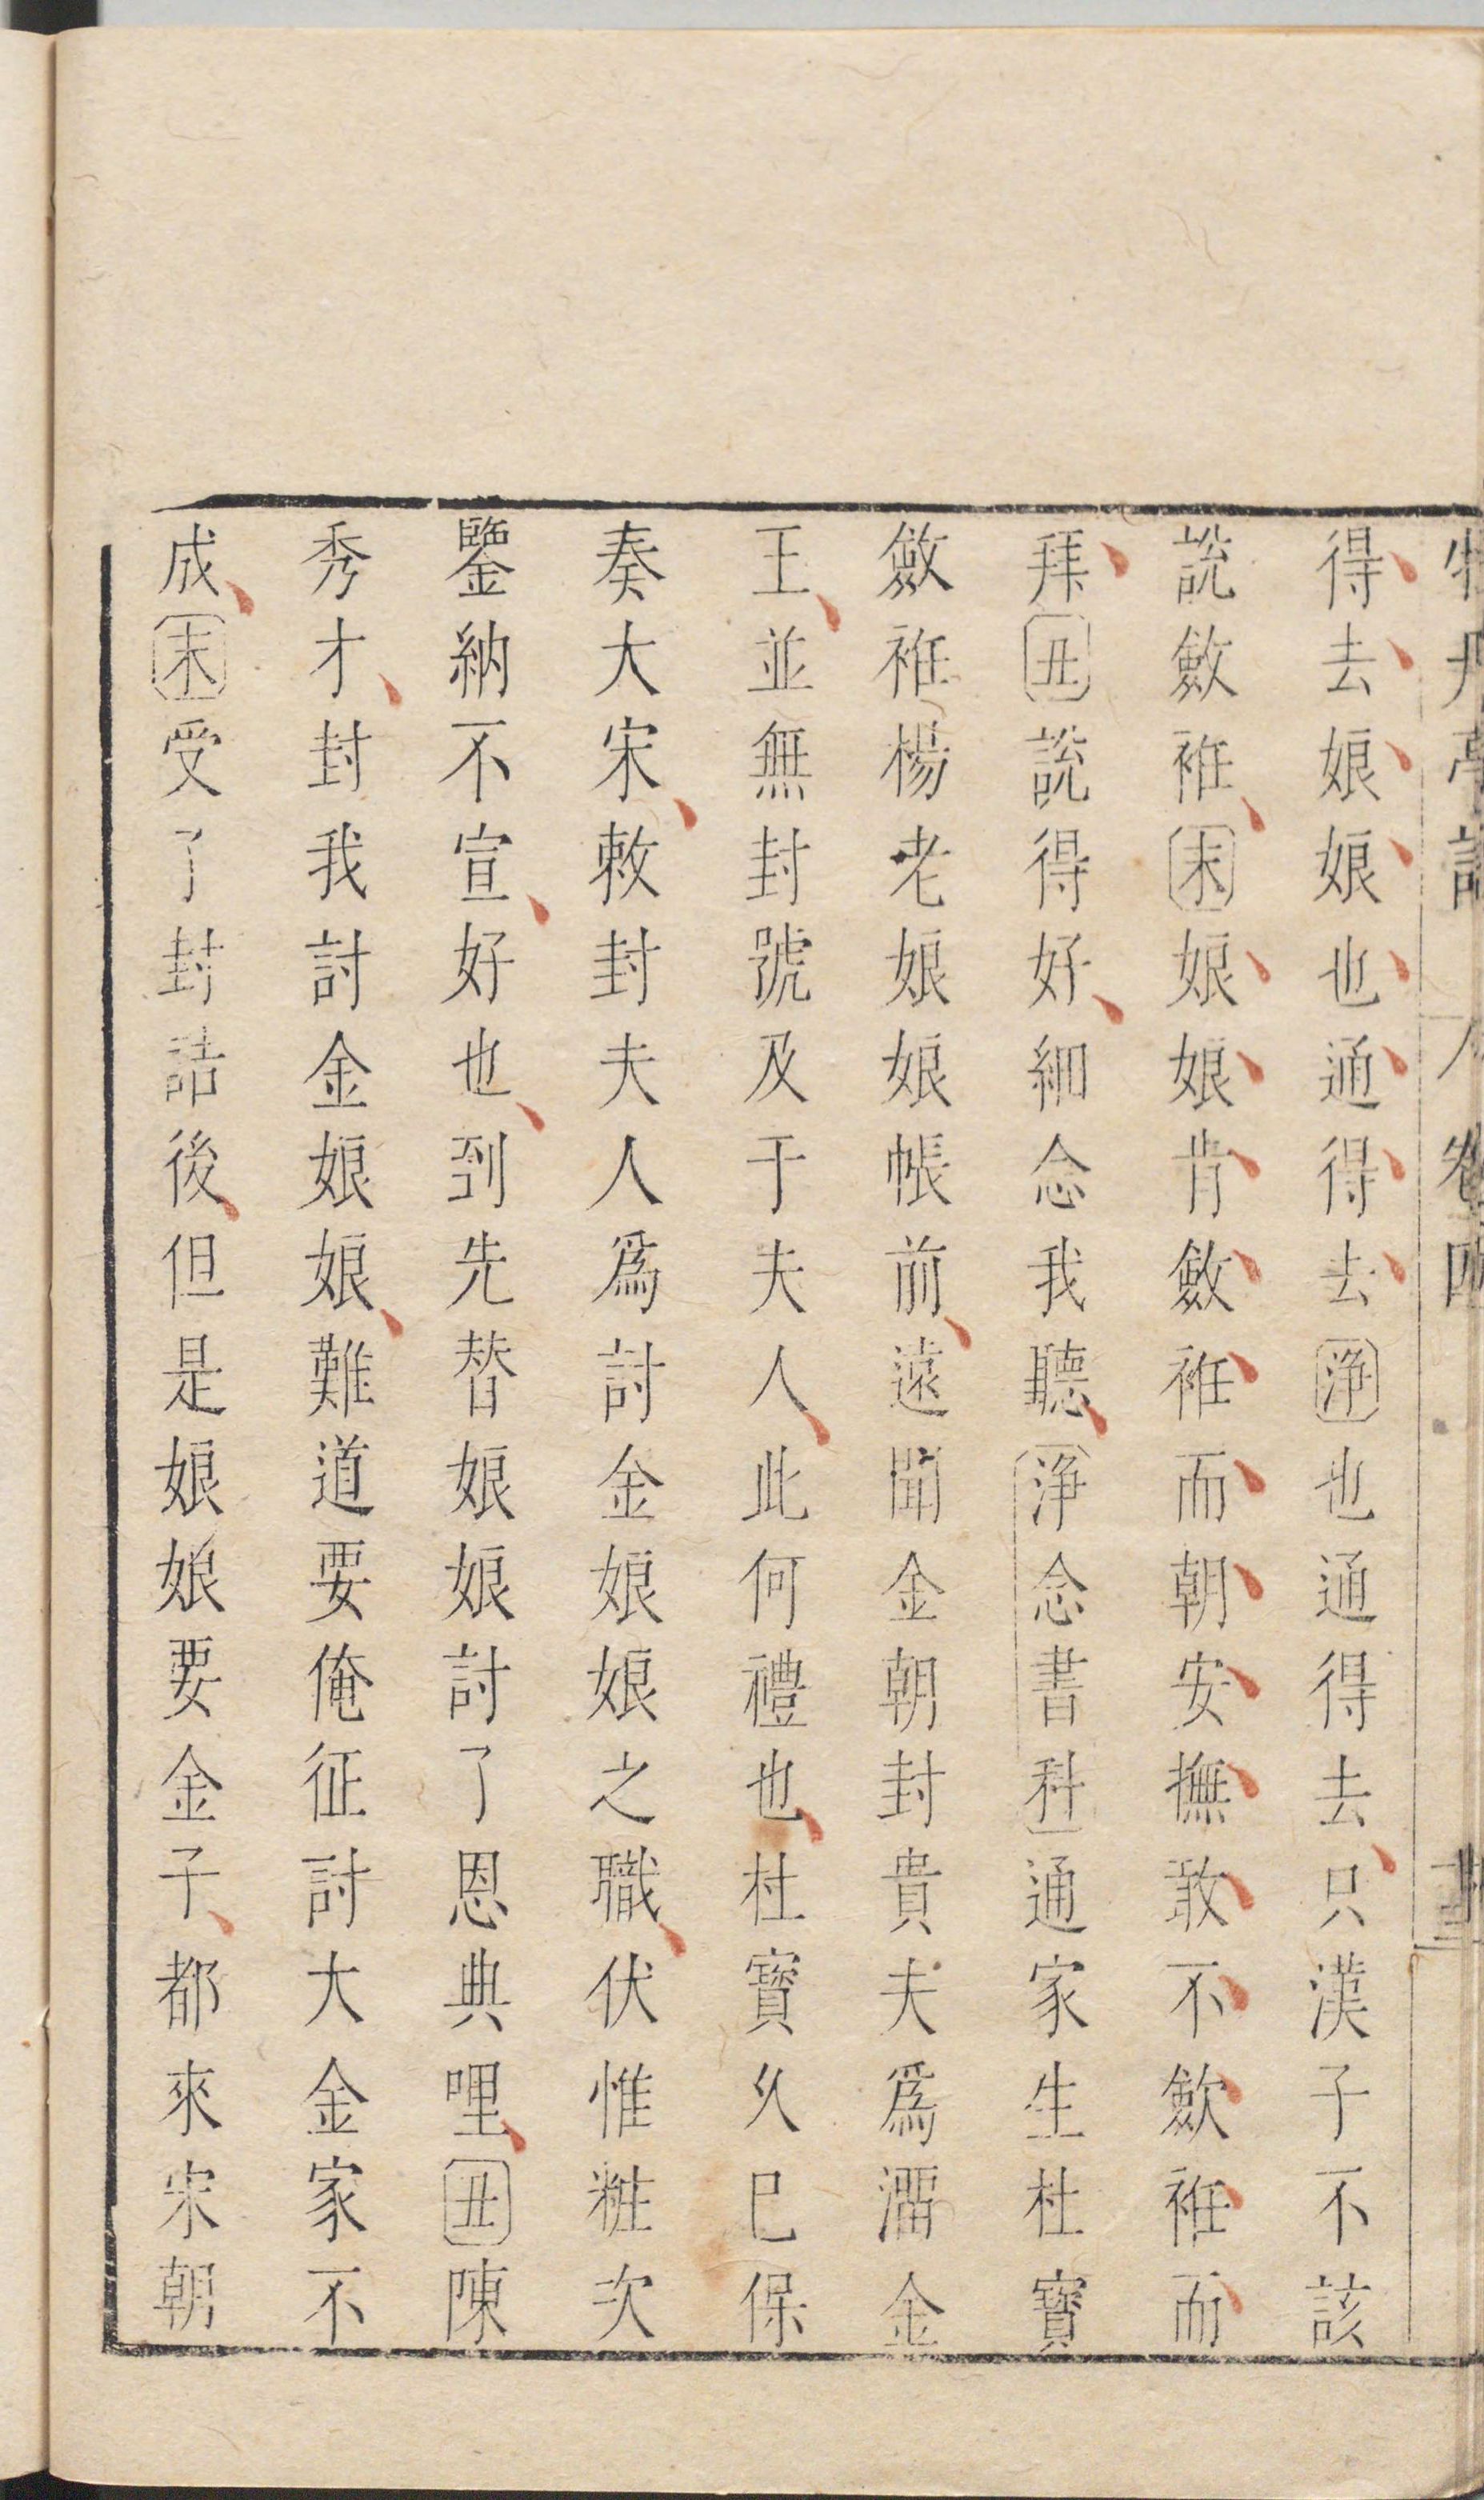 牡丹亭記 卷四
得去娘娘也通得去淨也通得去只漢子不該
說斂袵末娘娘肯斂袵而朝安撫敢不歛袵而
拜丑說得好細念我聽淨念書科通家生杜寶
斂袵楊老娘娘帳前遠聞金朝封貴夫爲溜金
王並無封號及于夫人此何禮也杜寶久已保
奏大宋敕封夫人爲討金娘娘之職伏惟粧次
鑒納不宣好也到先替娘娘討了恩典哩丑陳
秀才封我討金娘娘難道要俺征討大金家不
成末受了封誥後但是娘娘要金子都來宋朝